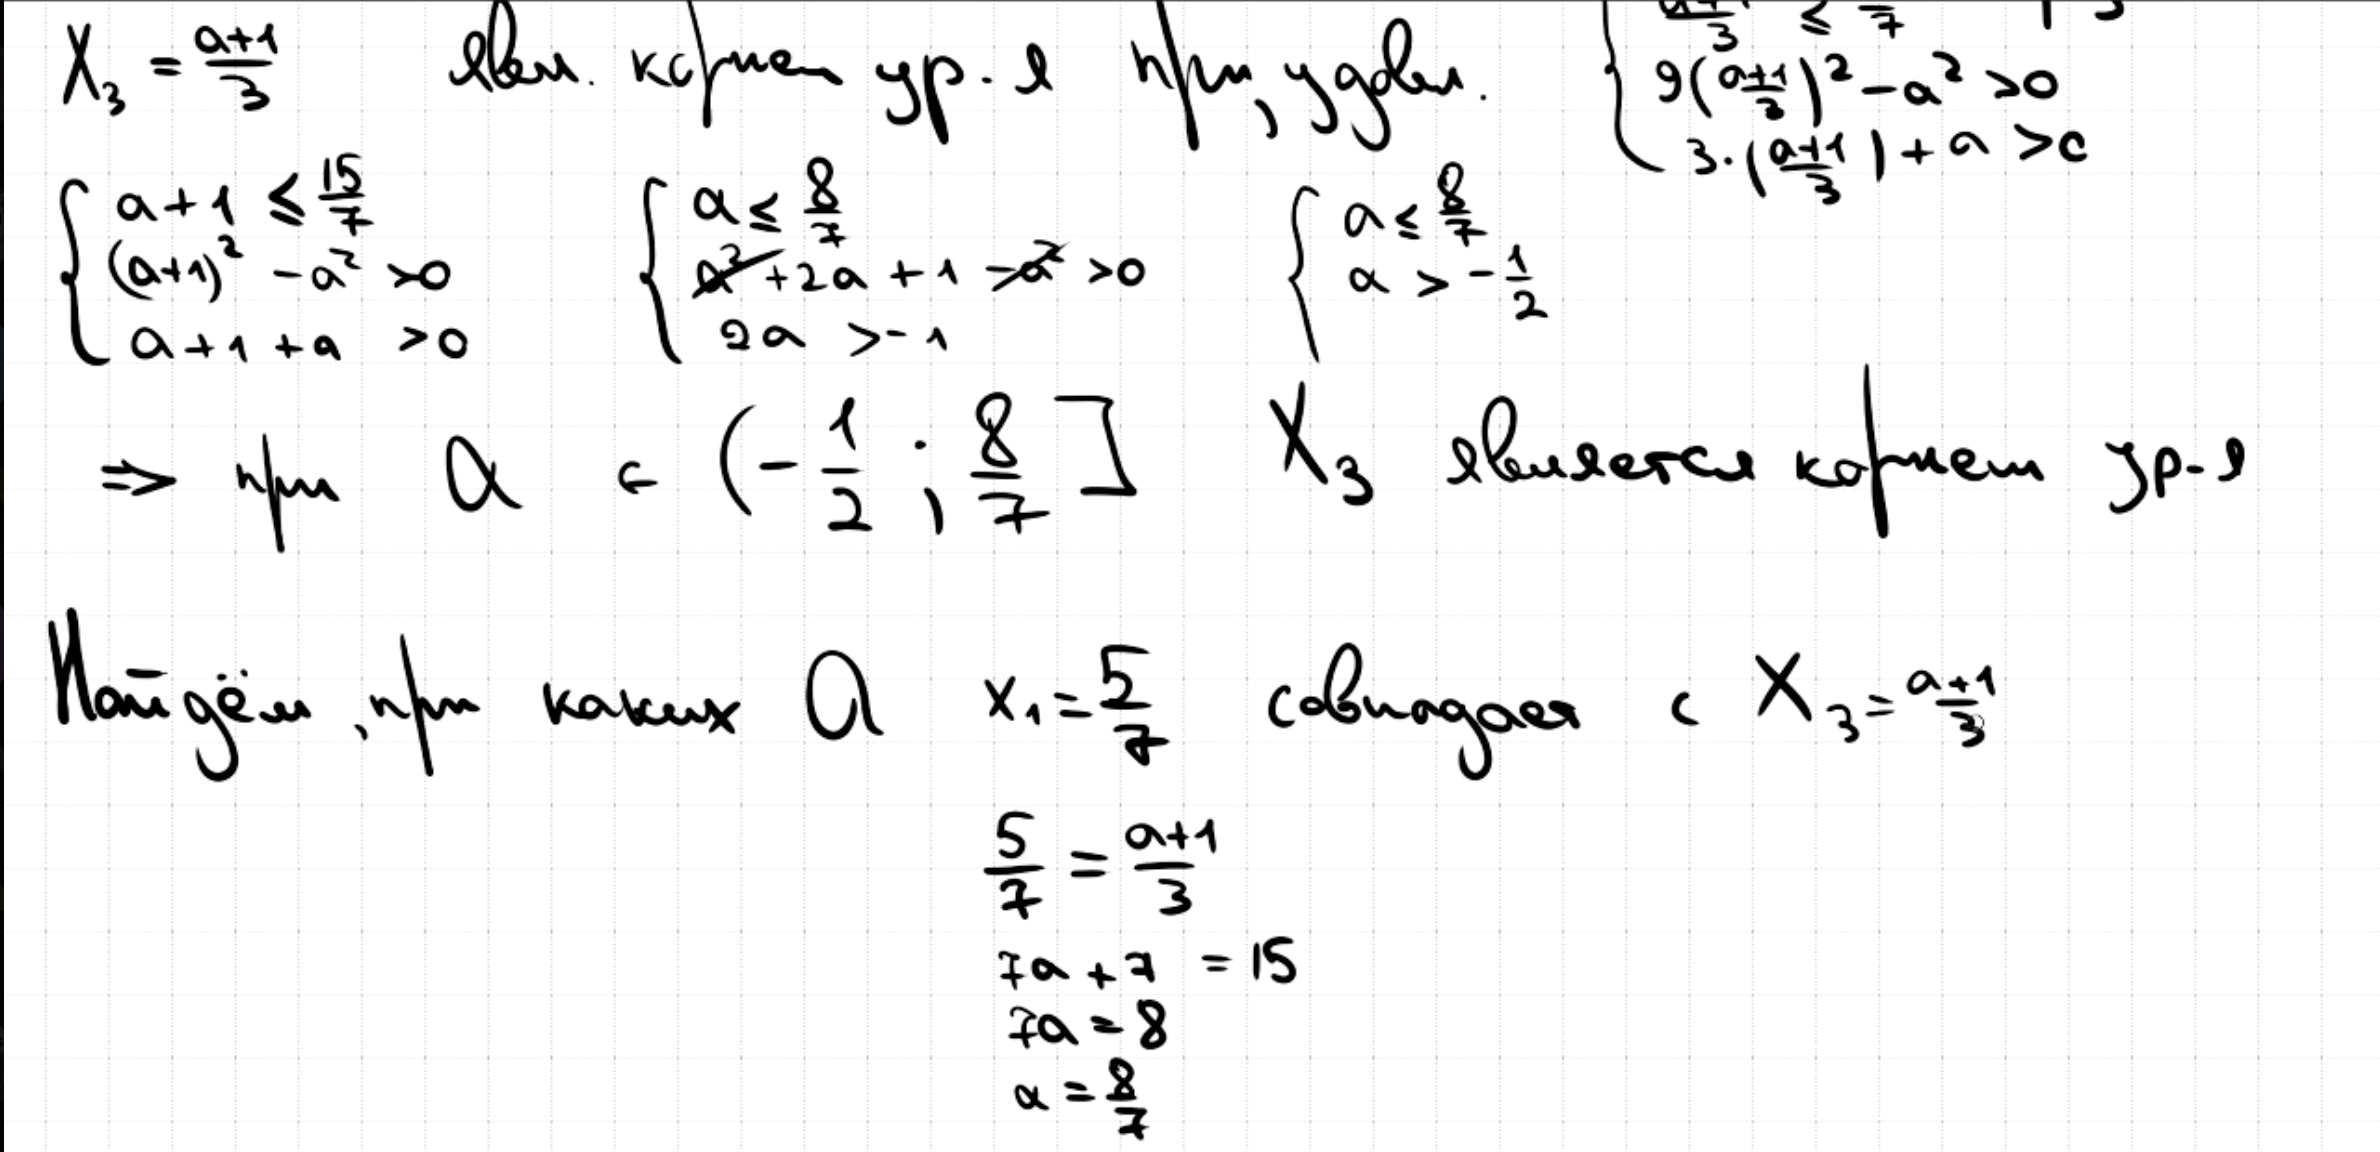 X₃ = (a+1)/3 явл. корнем ур-я при, удовл.
{ (a+1)/3 ≤ 5/7 | · 3
9((a+1)/3)² − a² > 0
3·((a+1)/3) + a > 0
{ a + 1 ≤ 15/7 { a ≤ 8/7 { a ≤ 8/7
(a+1)² − a² > 0 a² + 2a + 1 − a² > 0 a > −1/2
a + 1 + a > 0 2a > −1
⇒ при a ∈ (−1/2 ; 8/7] X₃ является корнем ур-я
Найдём, при каких a x₁ = 5/7 совпадает с X₃ = (a+1)/3
5/7 = (a+1)/3
7a + 7 = 15
7a = 8
a = 8/7